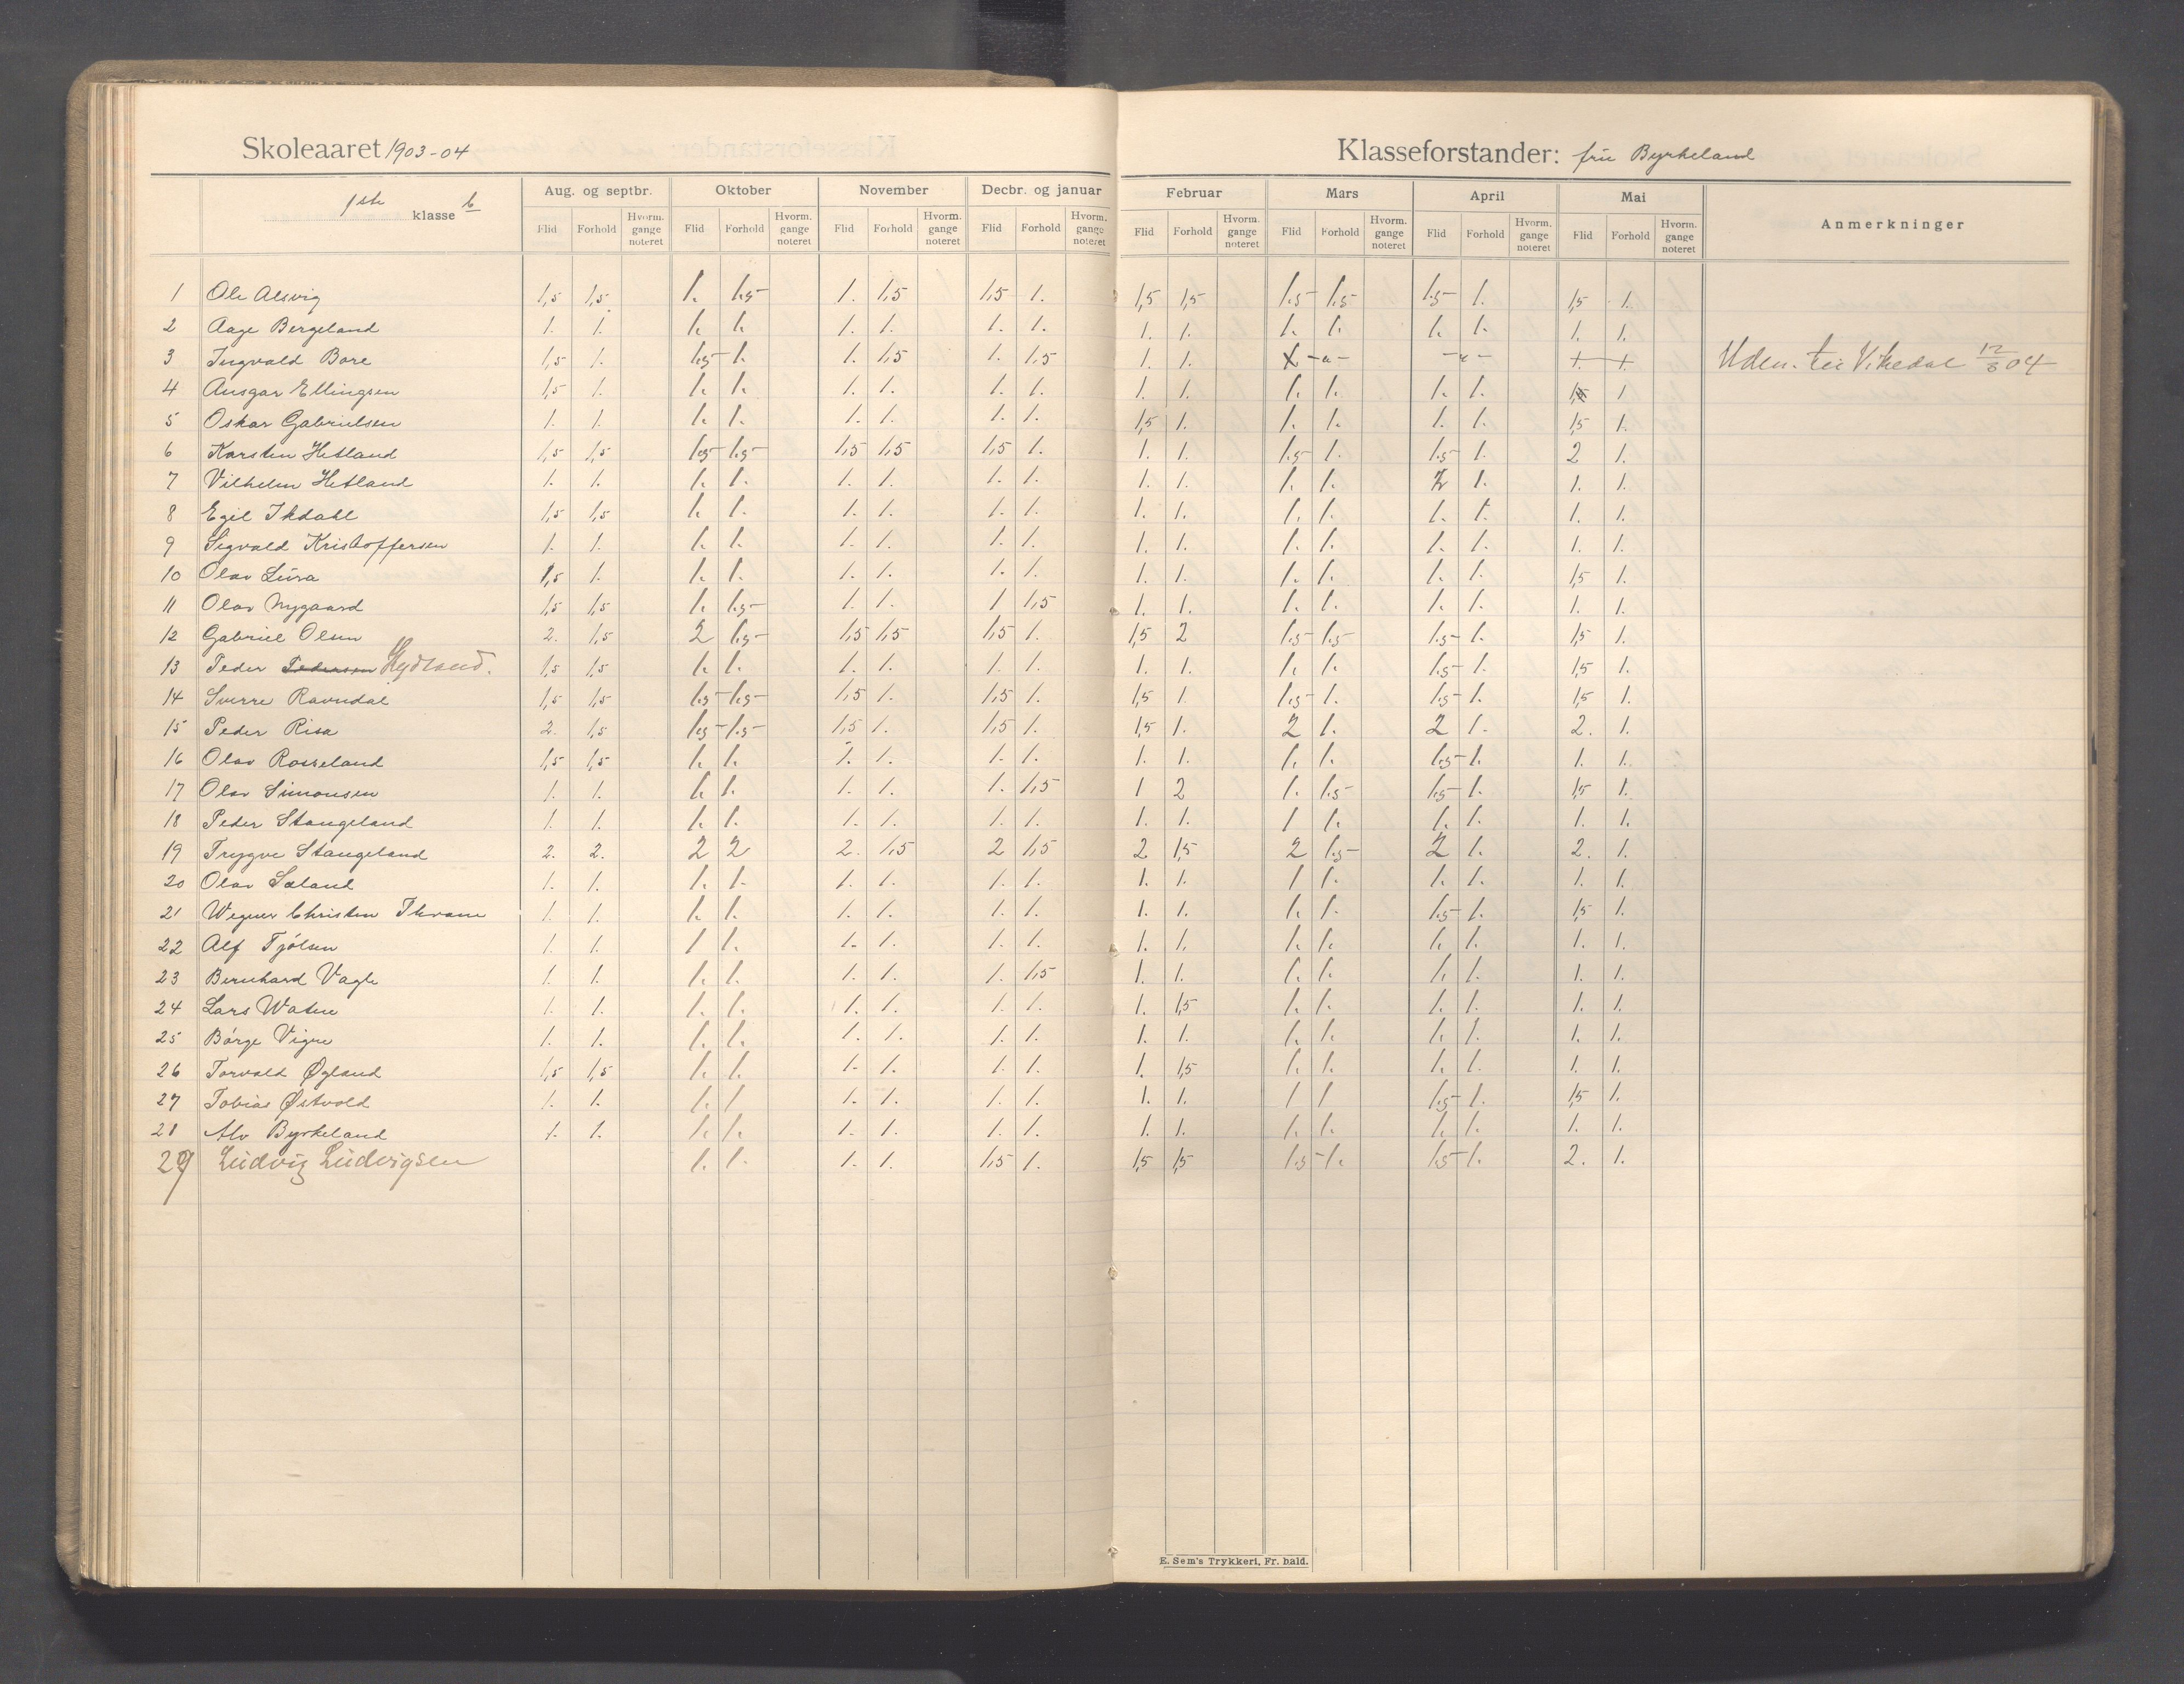 Skoleaaret 1903-04
Klasseforstander: fru Byrkeland
1ste klasse b
Aug. og septbr. Oktober November Decbr. og januar Februar Mars April Mai Anmerkninger
Flid Forhold Hvorm. gange noteret Flid Forhold Hvorm. gange noteret Flid Forhold Hvorm. gange noteret Flid Forhold Hvorm. gange noteret Flid Forhold Hvorm. gange noteret Flid Forhold Hvorm. gange noteret Flid Forhold Hvorm. gange noteret Flid Forhold Hvorm. gange noteret
1 Ole Alsvig 1,5 1,5 1. 1.5 1. 1,5 1,5 1. 1,5 1,5 1.5 1.5 1.5 1. 1,5 1.
2 Aage Bergeland 1. 1. 1. 1. 1. 1. 1. 1. 1. 1. 1. 1. 1. 1. 1. 1.
3 Ingvald Bore 1,5 1. 1.5 1. 1. 1,5 1. 1,5 1. 1. X -"- -"- + + Uden. til Vikedal 12/3 04
4 Ansgar Ellingsen 1,5 1. 1. 1. 1. 1. 1. 1. 1. 1. 1. 1. 1. 1. 1
5 Oskar Gabrielsen 1. 1. 1. 1. 1. 1. 1. 1. 1,5 1. 1. 1. 1. 1. 1,5 1.
6 Karsten Hetland 1,5 1,5 1.5 1.5 1,5 1,5 1,5 1. 1. 1. 1.5 1. 1.5 1. 2 1.
7 Vilhelm Hetland 1. 1. 1. 1. 1. 1. 1. 1. 1. 1. 1. 1. 2 1. 1. 1.
8 Egil Ihdahl 1,5 1,5 1. 1. 1. 1. 1. 1. 1. 1. 1. 1. 1. 1. 1. 1.
9 Sigvald Kristoffersen 1. 1. 1. 1. 1. 1. 1. 1. 1. 1. 1. 1. 1. 1. 1. 1.
10 Olav Lura 1,5 1. 1. 1. 1. 1. 1. 1. 1. 1. 1. 1. 1. 1. 1,5 1.
11 Olav Nygaard 1,5 1,5 1. 1.5 1. 1. 1 1,5 1. 1. 1. 1. 1. 1. 1. 1.
12 Gabriel Olsen 2. 1,5 2 1.5 1,5 1,5 1,5 1. 1,5 2 1.5 1.5 1.5 1. 1,5 1.
13 Peder Pedersen Hydland. 1,5 1,5 1. 1. 1. 1. 1. 1. 1. 1. 1. 1. 1.5 1. 1,5 1.
14 Sverre Ravndal 1,5 1,5 1.5 1.5 1,5 1. 1,5 1. 1,5 1 1.5 1. 1.5 1. 1,5 1.
15 Peder Risa 2. 1,5 1.5 1.5 1,5 1. 1,5 1. 1,5 1. 2 1. 2 1. 2. 1.
16 Olav Rosseland 1,5 1,5 1. 1. 1. 1. 1. 1. 1. 1. 1. 1. 1.5 1. 1. 1.
17 Olav Simonsen 1. 1. 1. 1. 1. 1. 1. 1,5 1 2 1. 1.5 1.5 1. 1,5 1.
18 Peder Stangeland 1. 1. 1. 1. 1. 1. 1. 1. 1. 1. 1 1. 1. 1. 1. 1.
19 Trygve Stangeland 2. 2. 2 2 2. 1,5 2 1,5 2 1,5 2 1.5 2 1. 2. 1.
20 Olav Sæland 1. 1. 1. 1. 1. 1. 1. 1. 1. 1. 1 1. 1. 1. 1. 1.
21 Wegner Christen Thrane 1. 1. 1. 1. 1. 1. 1. 1. 1. 1. 1. 1. 1.5 1. 1,5 1.
22 Alf Tjölsen 1. 1. 1 1. 1. 1. 1. 1. 1. 1. 1. 1. 1. 1. 1. 1.
23 Bernhard Vagle 1. 1. 1. 1. 1. 1. 1. 1,5 1. 1. 1. 1. 1. 1. 1. 1.
24 Lars Watne 1. 1. 1. 1. 1. 1. 1. 1. 1. 1,5 1. 1. 1. 1. 1. 1.
25 Børge Vigre 1. 1. 1. 1. 1. 1. 1. 1. 1. 1. 1. 1. 1. 1. 1. 1.
26 Torvald Øgland 1,5 1,5 1. 1. 1. 1. 1. 1. 1. 1,5 1. 1. 1. 1. 1. 1.
27 Tobias Østvold 1. 1. 1. 1 1. 1. 1. 1. 1. 1. 1 1 1.5 1. 1,5 1.
28 Alv Byrkeland 1. 1. 1. 1. 1. 1. 1. 1. 1. 1. 1. 1. 1. 1. 1. 1.
29 Ludvig Ludvigsen 1. 1. 1. 1. 1,5 1. 1,5 1,5 1.5 1. 1.5 1. 2. 1.
E. Sem's Trykkeri, Fr. hald.